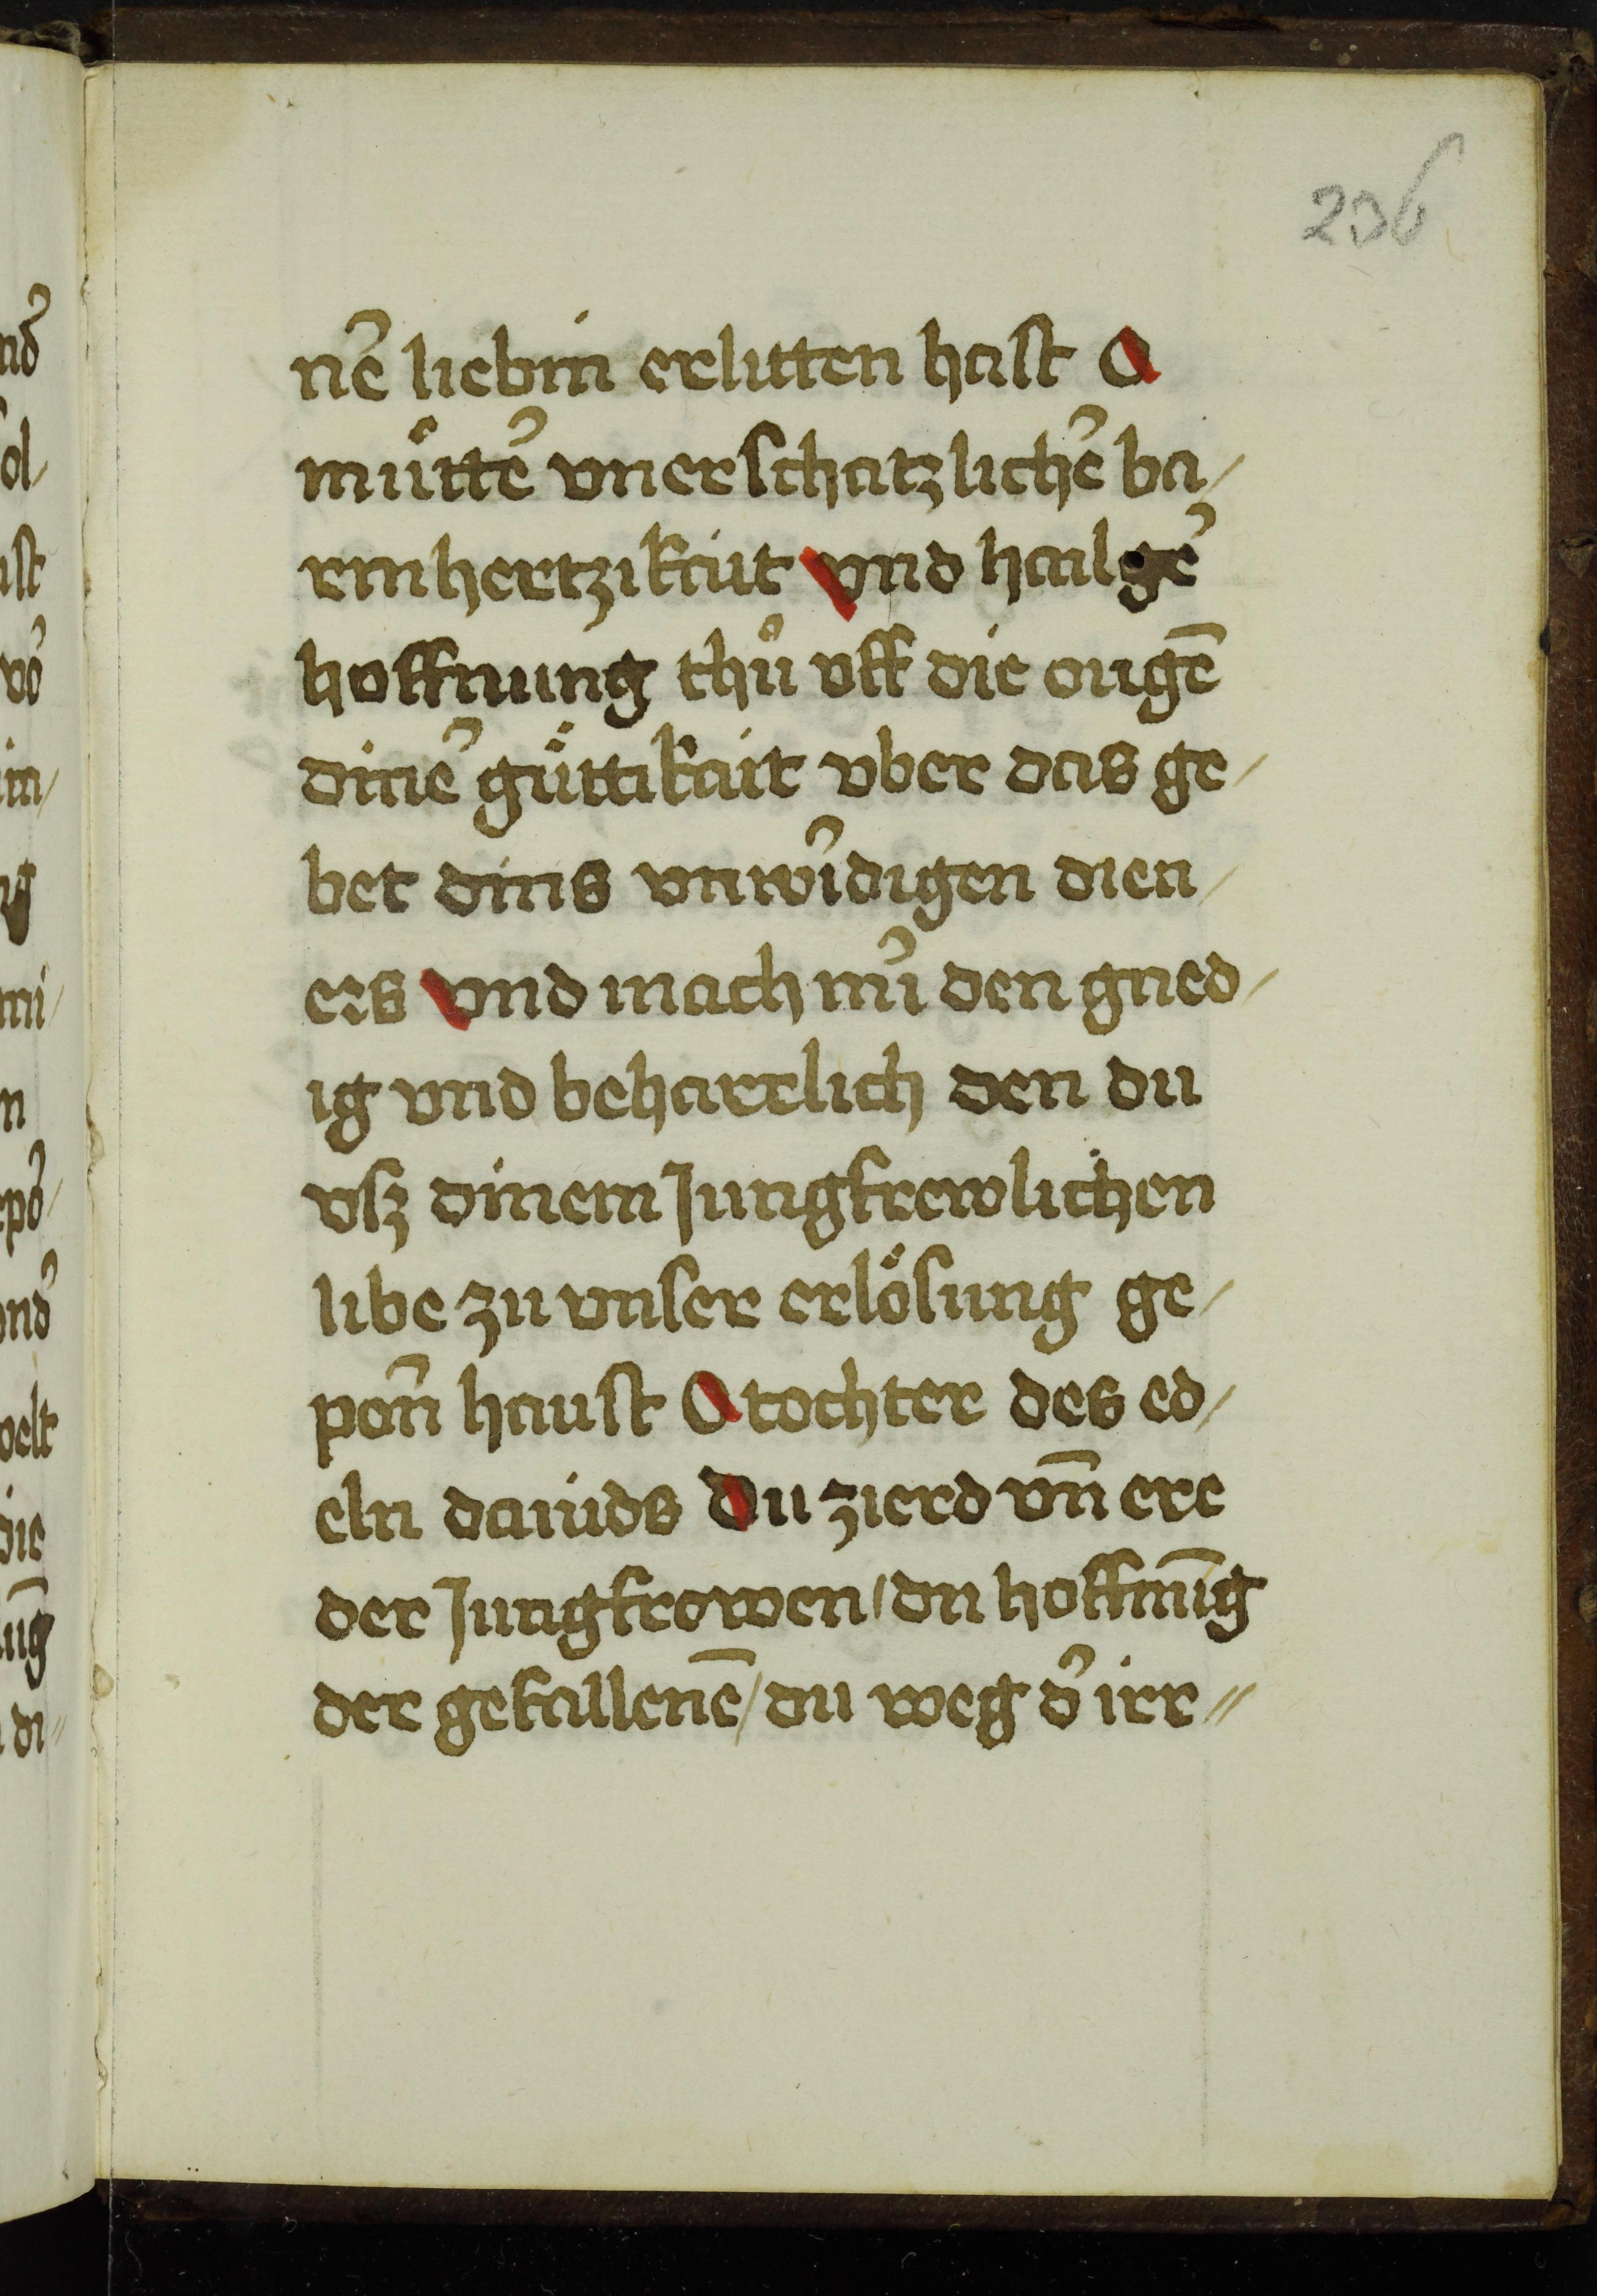 236
ne᷑ liebin erlitten hast O
mu̍tte᷑ vnerschatzliche᷑ ba⸗
rmhertzikait vnd hailge᷑
hoffnung thů vff die ougē
dine᷑ gu̍ttikait vber das ge⸗
bet dins vnwi᷑digen dien⸗
ers vnd mach mi᷑ den gned⸗
ig vnd beharrlich den du
vsz dinem Jungfrewlichen
libe zu vnser erlo̍sung ge⸗
porn̄ haust O tochter des ed⸗
eln dauids Du zierd vn̄ ere
der Jungfrowen / du hoffnūg
der gefallenē / du weg d᷑ irr⸗